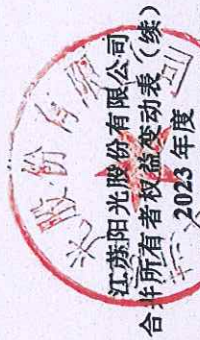 江苏阳光股份有限公司
合并所有者权益变动表（续）
2023 年度